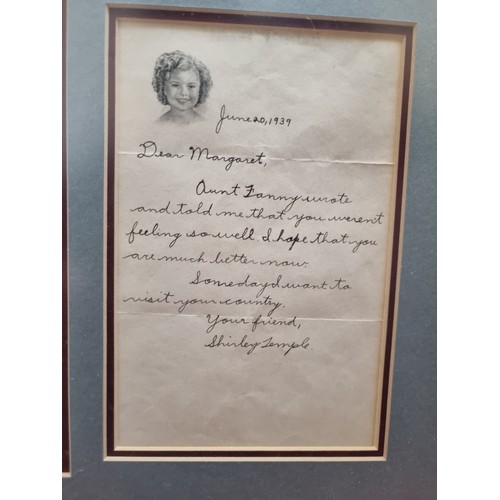 June 20, 1939
Dear Margaret,
Aunt Fanny wrote
and told me that you weren't
feeling so well. I hope that you
are much better now.
Someday I want to
visit your country.
Your friend,
Shirley Temple.